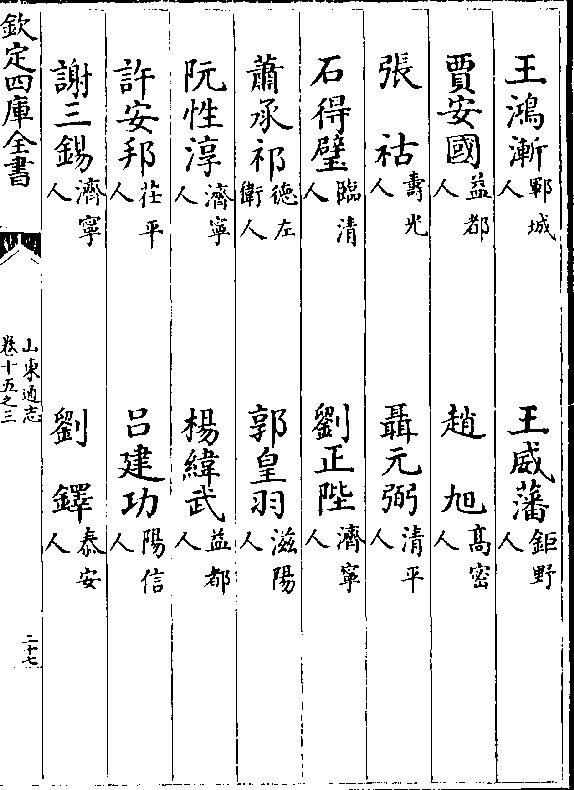 王鴻漸鄆城人　王威藩鉅野人
賈安國益都人　趙旭高密人
張祜壽光人　聶元弼清平人
石得璧臨清人　劉正陛濟寧人
蕭承祁德左衛人　郭皇羽滋陽人
阮性淳濟寧人　楊緯武益都人
許安邦茌平人　呂建功陽信人
謝三錫濟寧人　劉鐸泰安人
欽定四庫全書
山東通志
卷十五之三
二十七